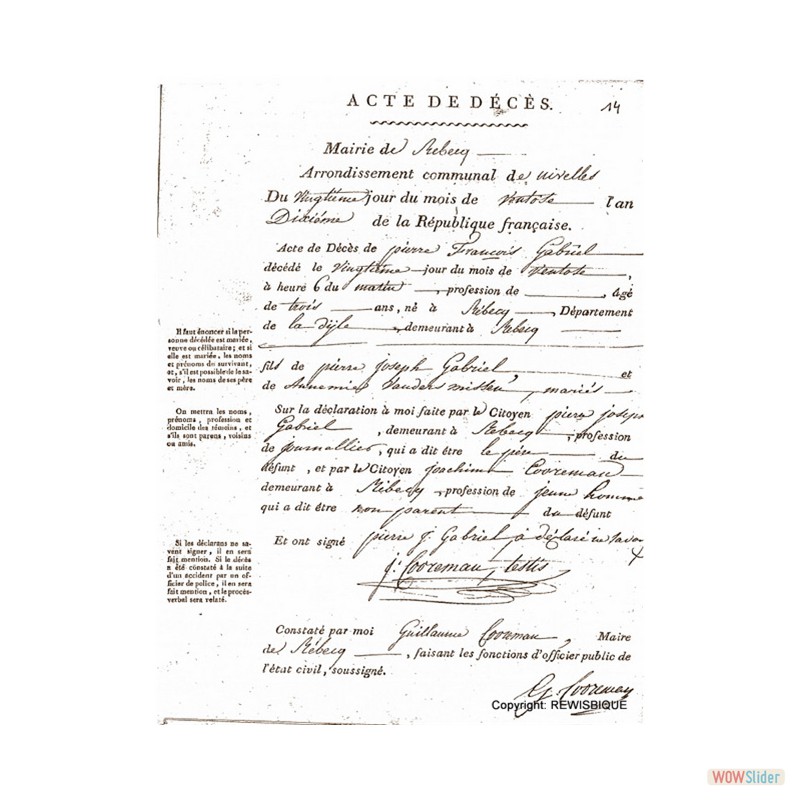 ACTE DE DÉCÈS. 14
Mairie de Rebecq
Arrondissement communal de nivelles
Du Vingtième jour du mois de Ventose l'an
Dixième de la République française.
Acte de Décès de pierre François Gabriel
décédé le Vingtième jour du mois de Ventose,
à heure 6 du matin, profession de , âgé
de trois ans, né à Rebecq, Département
de la dÿle, demeurant à Rebecq
fils de pierre joseph Gabriel, et
de Annemie, mariés
Sur la déclaration à moi faite par le Citoyen pierre joseph
Gabriel, demeurant à Rebecq, profession
de journallier, qui a dit être le père du
défunt, et par le Citoyen joachim Cooreman
demeurant à Rebecq, profession de jeune homme
qui a dit être non parent du défunt
Et ont signé pierre j. Gabriel a déclaré ne savoi
j: Cooreman, testis
Constaté par moi Guillaume Cooreman, Maire
de Rebecq, faisant les fonctions d'officier public de
l'état civil, soussigné.
G. Cooreman
Il faut énoncer si la per-
sonne décédée est mariée,
veuve ou célibataire; et si
elle est mariée, les noms
et prénoms du survivant,
et, s'il est possible de le sa-
voir, les noms de ses père
et mère.
On mettra les noms,
prénoms, profession et
domicile des témoins, et
s'ils sont parens, voisins
ou amis.
Si les déclarans ne sa-
vent signer, il en sera
fait mention. Si le décès
a été constaté à la suite
d'un accident par un of-
ficier de police, il en sera
fait mention, et le procès-
verbal sera relaté.
Copyright: REWISBIQUE
WOWSlider